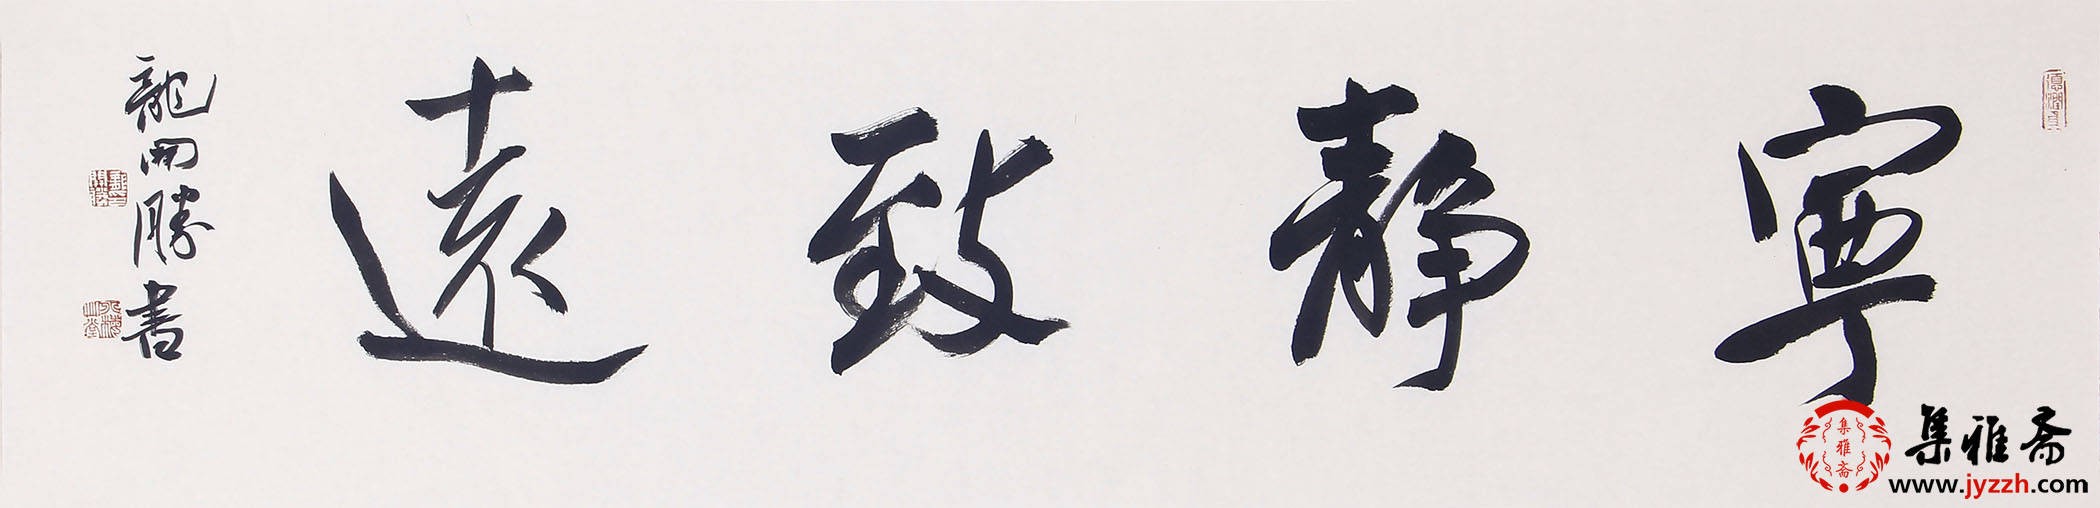 寧静致遠
龍開勝書
集雅斋
集雅斋
www.jyzzh.com